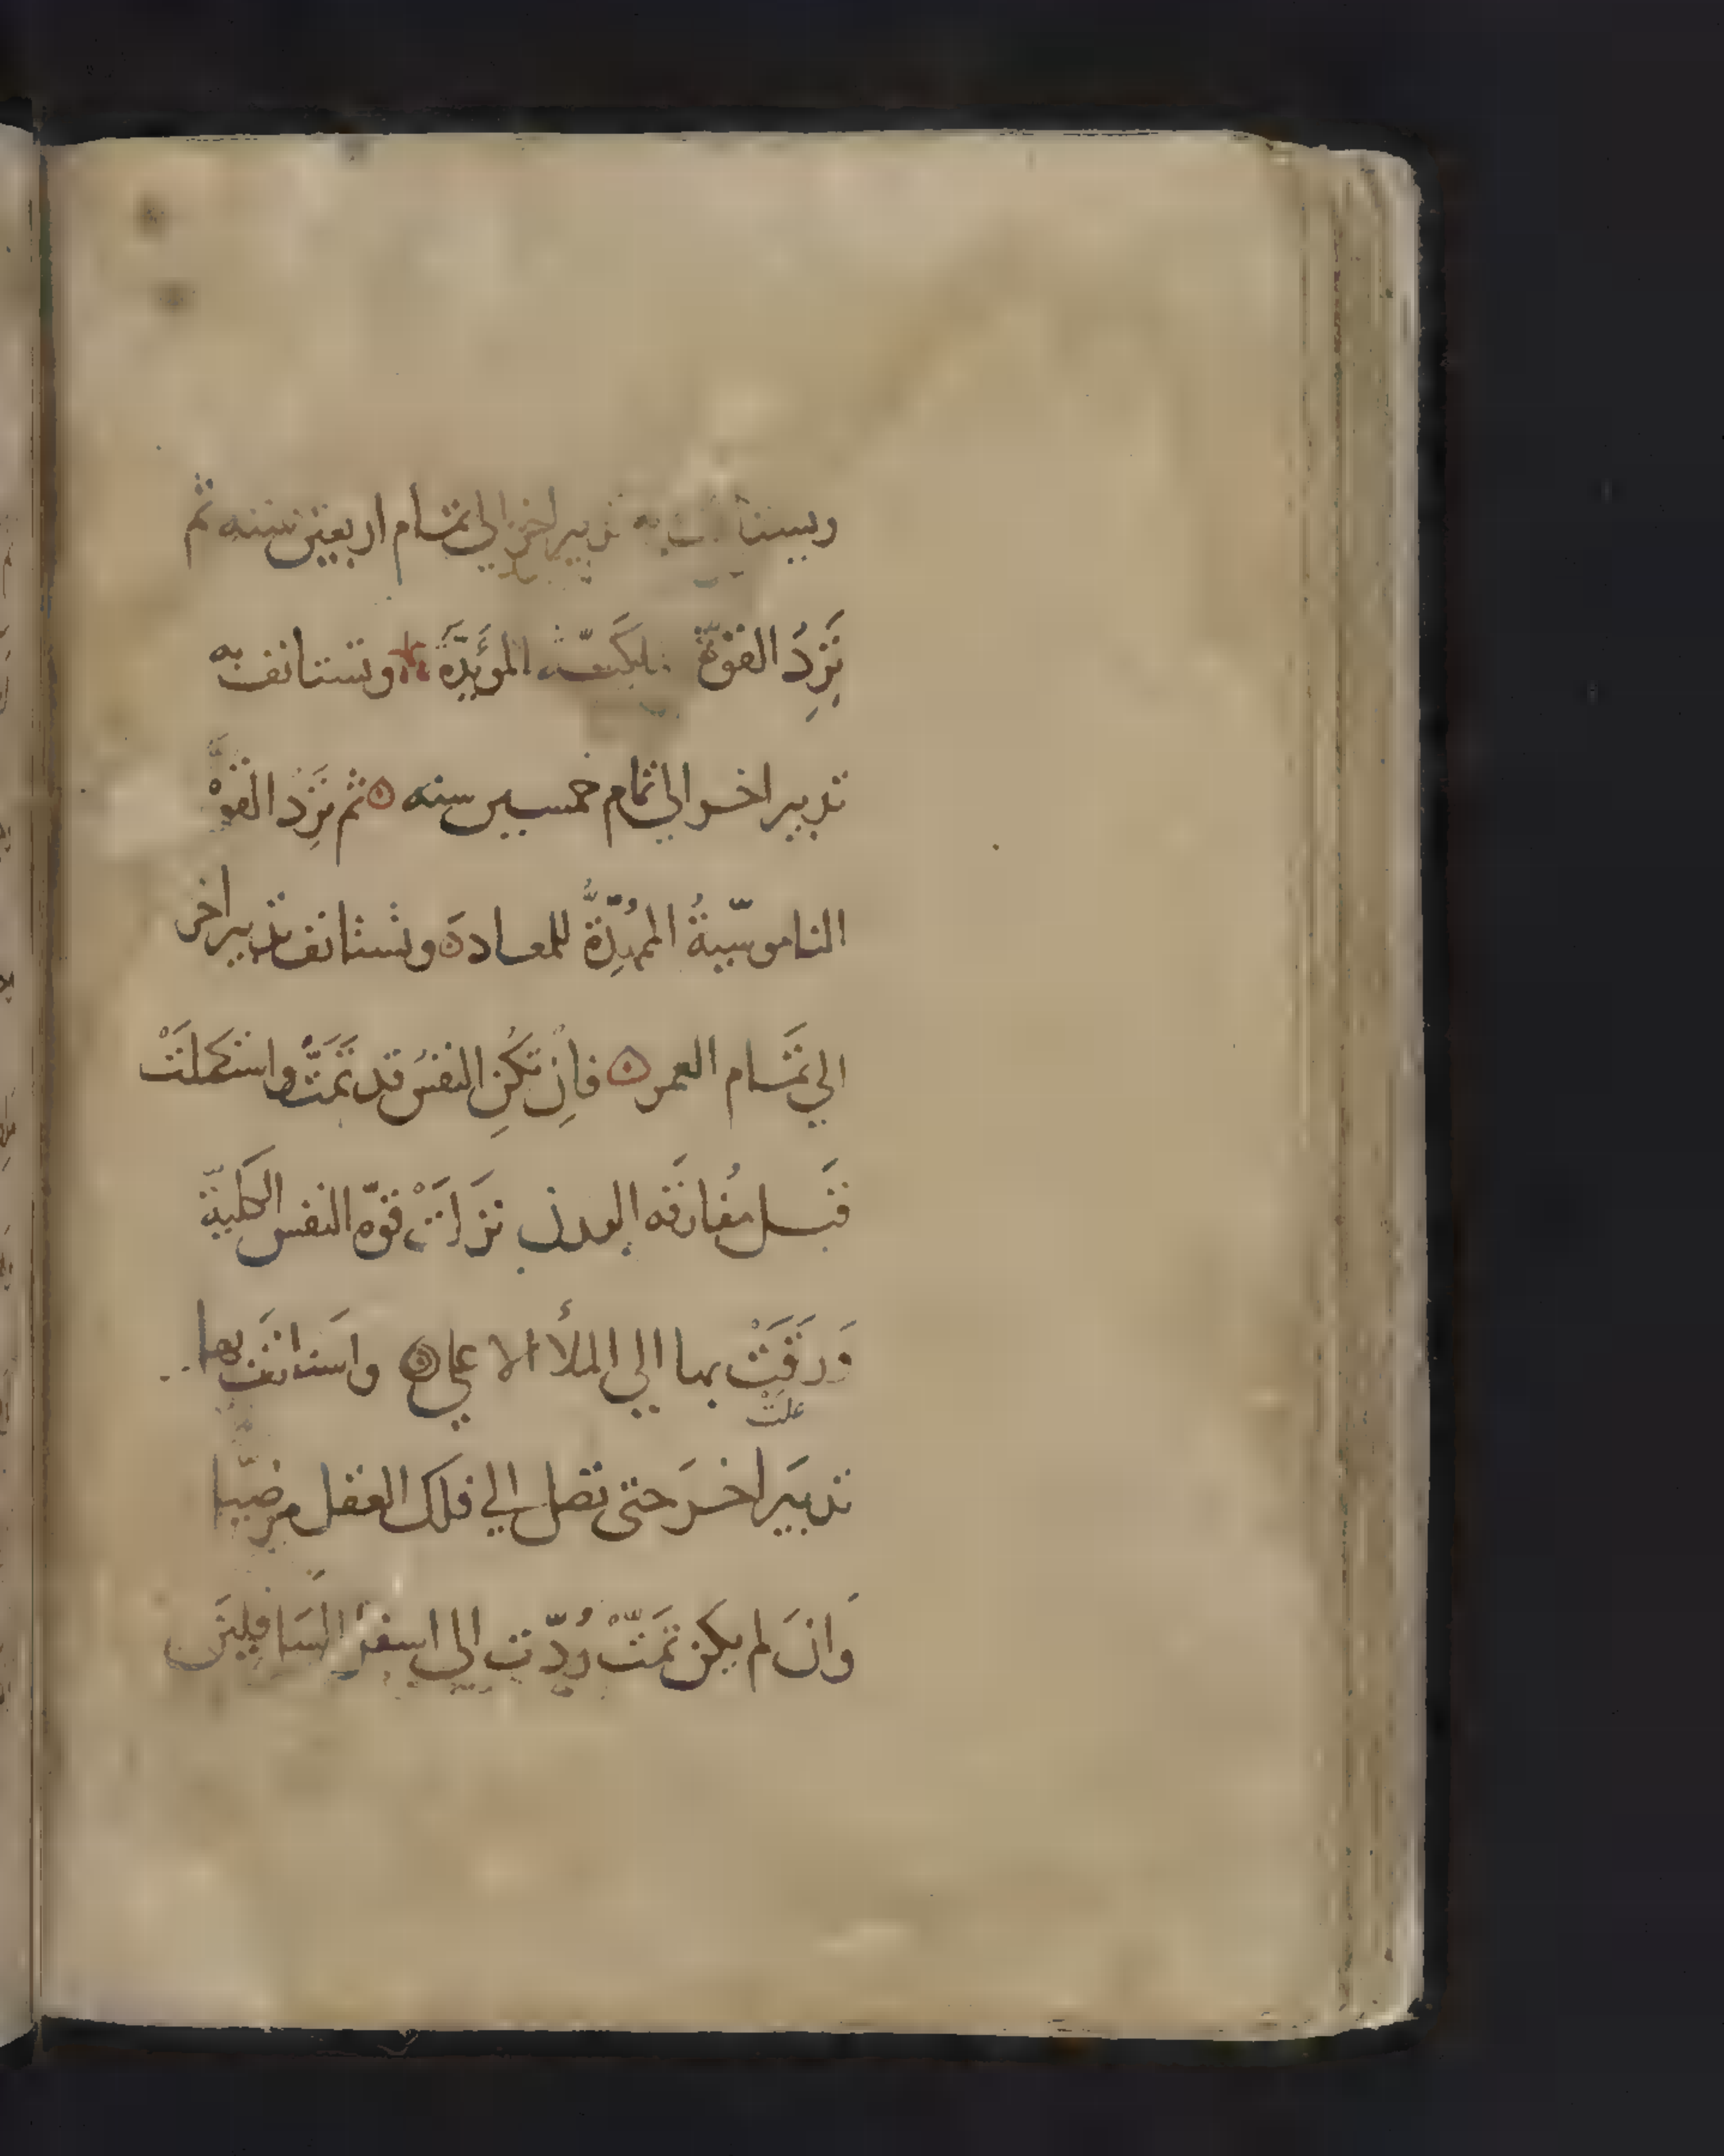 ويستانف به تدبير اخر الي تمام اربعين سنه ثم
تَرِدُ القوّةُ الملكيّة المؤَيّدَة وتستانف به
تدبير اخر الي تمام خمسين سنه ثم تَرِد القوّة
الناموسّيةُ المُمهِّدَةُ للمعاد وتستانف تدبير اخر
الي تَمَام العمر فاِنْ تَكُنِ النفسُ قد تَمَّتْ واستَكملتْ
قَبل مُفارقَه البدن نَزلَتْ قوّه النفس الكليةّ
وَرَقَتْ بها الي الملأ الاعلي واستانَفَت بها
علتْ
تدبيَر اخرَ حتى تصل الي فلَك العقل مرضيّا
وَانَ لم يكن تَمَتّْ رُدّت الى اسفل السَافِلِينَ